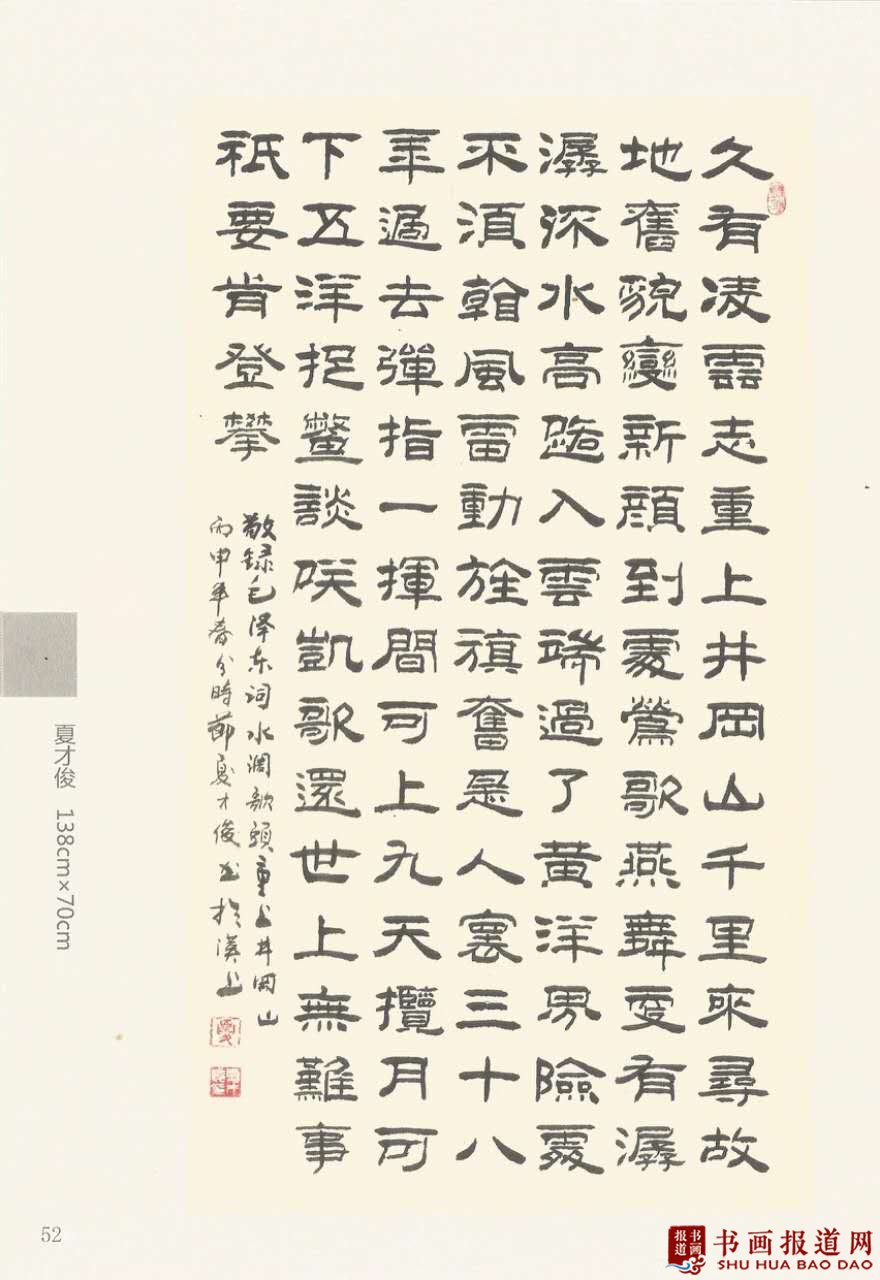 久有凌雲志重上井岡山千里來尋故
地舊貌變新顏到處鶯歌燕舞更有潺
潺流水高路入雲端過了黃洋界險處
不須看風雷動旌旗奮是人寰三十八
年過去彈指一揮間可上九天攬月可
下五洋捉鱉談笑凱歌還世上無難事
祇要肯登攀
敬録毛泽东词水调歌頭重上井岡山
丙申年春分時節夏才俊书於漢上
夏才俊 138cm×70cm
52
书画报道
书画报道网
SHU HUA BAO DAO